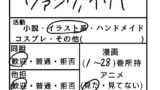 活動
小説・イラスト・ハンドメイド
コスプレ・その他( )
同担
歓迎・普通・拒否
他担
歓迎・普通・拒否
漫画
(1~28)巻所持
アニメ
(見た・見てない)